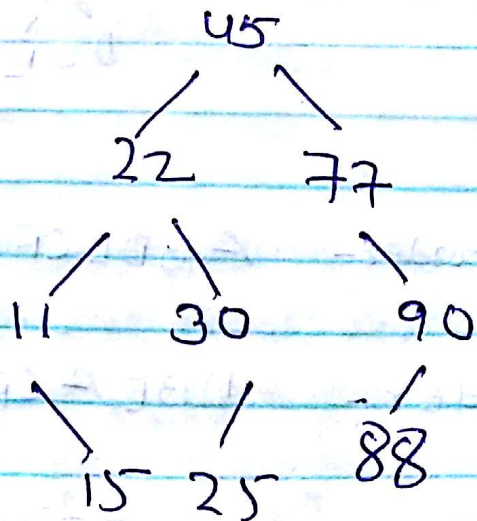 45
22 77
11 30 90
15 25 88